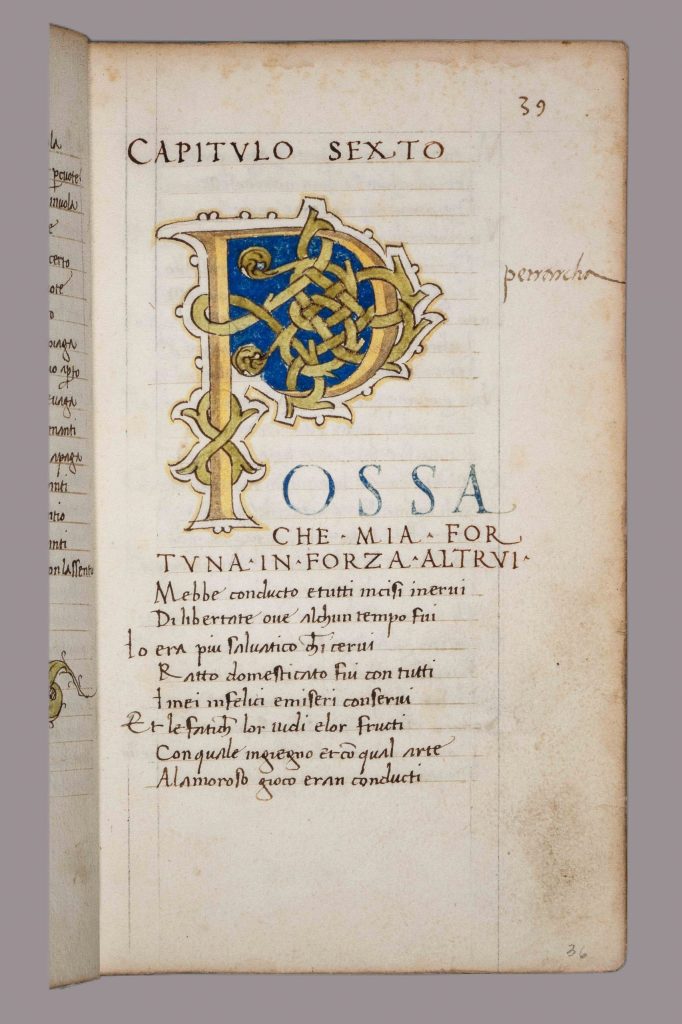 39
CAPITVLO SEXTO
petrarcha
POSSA
CHE · MIA · FOR
TVNA · IN · FORZA · ALTRVI ·
Mebbe conducto e tutti incisi inerui
Di libertate oue alchun tempo fui
Io era piu saluatico ch̄i cerui
Ratto domesticato fui con tutti
I mei infelici e miseri conserui
Et le fatich̄ lor uidi e lor fructi
Con quale ingiegno et cō qual arte
Al amoroso gioco eran conducti
36